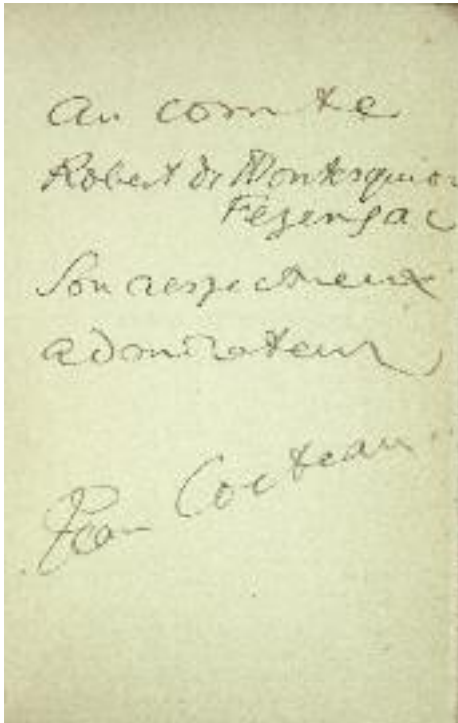 au comte
Robert de Montesquiou
Fezensac
Son respectueux
admirateur
Jean Cocteau